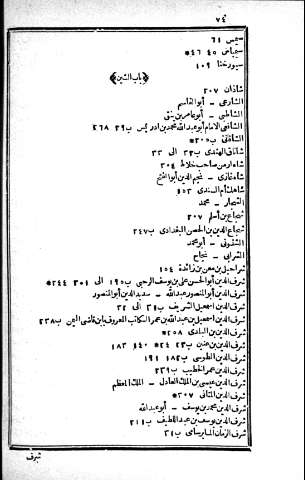 ٧٤
سيمس ٦١
سيماى ٤٥ ٤٦*
سيورختا ١٠٩
﴿باب الشين﴾
شاذان ٢٠٧
الشارعى — أبو القاسم
الشاطبى — أبو عامر بن ينق
الشافعى الامام أبو عبدالله محمد بن ادريس ب٢٩ ٢٦٨
الشافى ب٢٠٥*
شاناق الهندى ب٣٢ الى ٣٣
شاه ارمن صاحب خلاط ٢٠٤
شاه غازى — نجيم الدين أبو الفتح
شاهك أم السندى ١٥٣
الشهار — محمد
شجاع بن أسلم ٢٠٧
شجاع الدين بن الحصن البغدادى ب٢٤٧
الشفونى — أبو محمد
الشرابى — نجاح
شراحيل بن معن بن زائدة ١٥٤
شرف الدين أبو الحسن على بن يوسف الرحبى ب١٩٥ الى ٢٠١ ٢٤٤*
شرف الدين أبو المنصور عبدالله — سديد الدين أبو المنصور
شرف الدين اسمعيل الشريف ب٣١ الى ٣٢
شرف الدين اسمعيل بن عبدالله بن عمر الكاتب المعروف بابن قاضى اليمن ب٢٣٨
شرف الدين بن البلدى ٢٥٨*
شرف الدين بن عنين ب٢٣ ٢٤* ١٤٠ ١٨٣
شرف الدين الطوسى ب١٨٢ ١٩١
شرف الدين عمر الخطيب ب٢٣٩
شرف الدين عيسى بن الملك العادل — الملك المعظم
شرف الدين المتانى ٢٠٧*
شرف الدين محمد بن يوسف — أبو عبدالله
شرف الدين يوسف بن عبداللطيف ب٢١١
شرف الزمان المابرسامى ب٣١
شرف